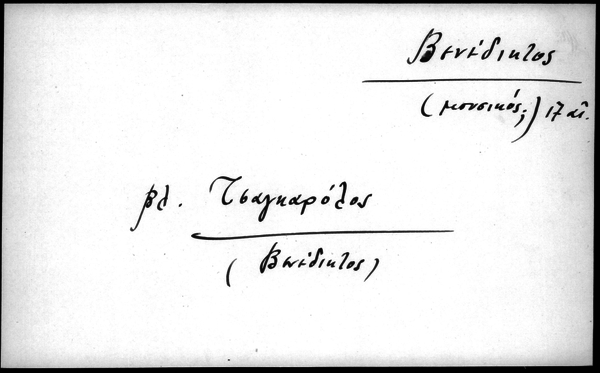 Βενέδικτος
(μουσικός;) 17 αἰ.
βλ. Τσαγκαρόλος
(Βενέδικτος)